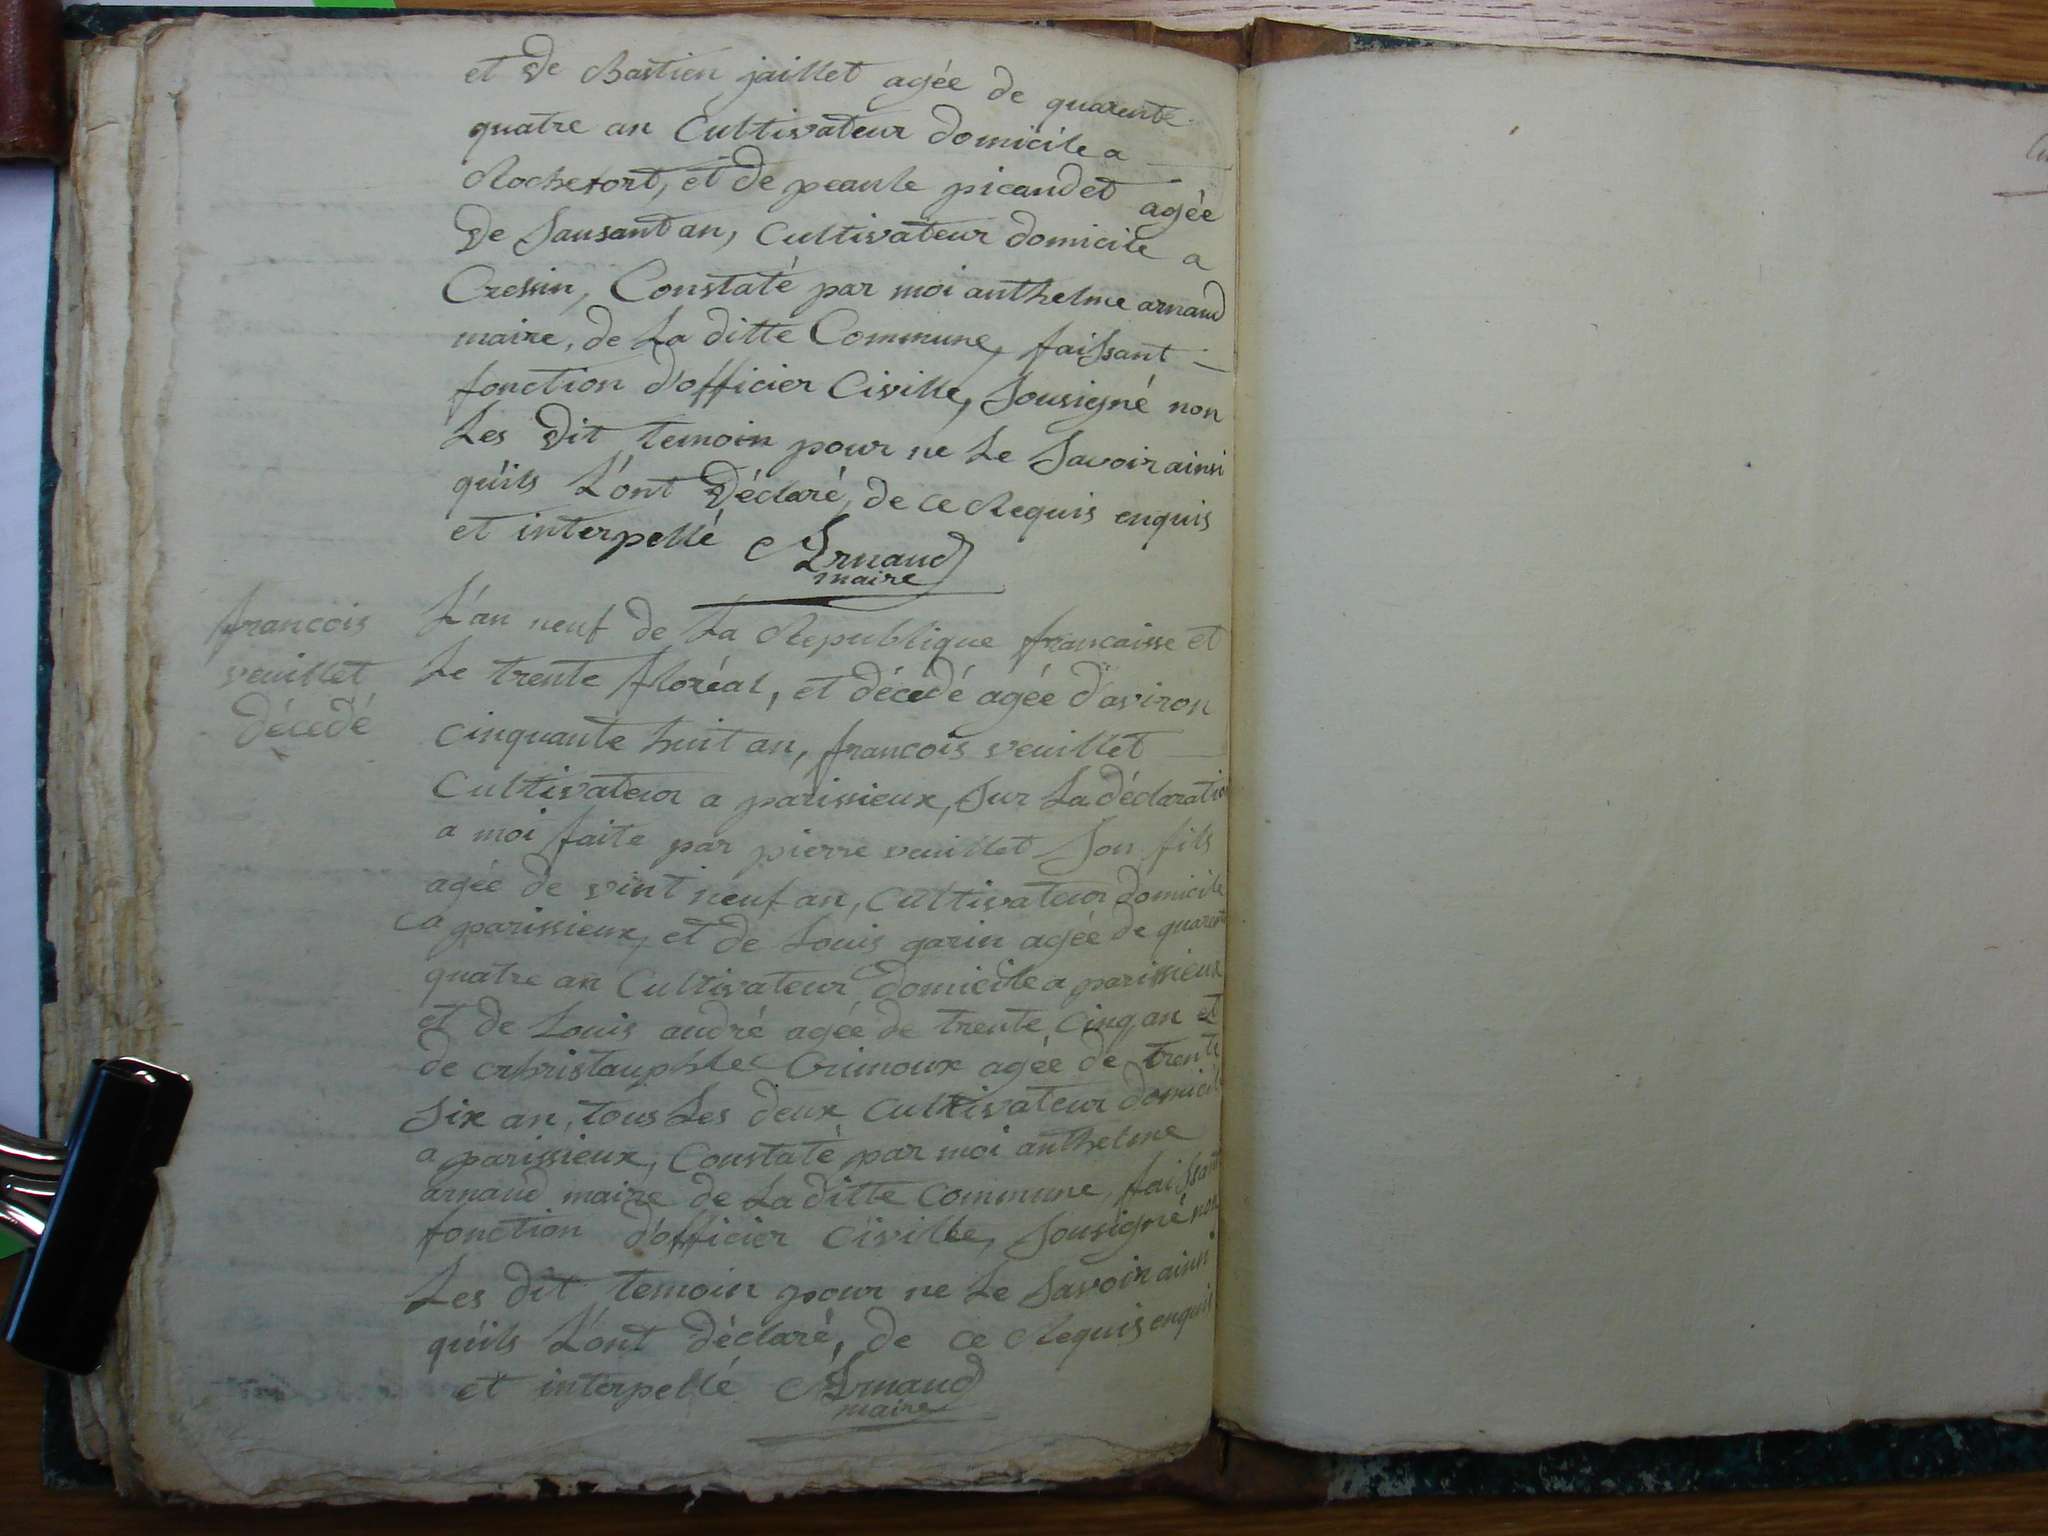 et de Bastien jaillet agée de quarente
quatre an Cultivateur domicile a
Rochefort, et de peaule picaudet agée
de Sausant an, Cultivateur domicile a
Cressin, Constaté par moi anthelme arnaud
maire, de La ditte Commune, faissant
fonction d'officier Civille, Sousigné non
Les dit temoin pour ne Le Savoir ainsi
qu'ils L'ont Déclaré, de ce Requis enquis
et interpellé Arnaud
maire
francois
veuillet
décedé
L'an neuf de La Republique francaisse et
Le trente floréal, et décedé agée d'aviron
cinquante huit an, francois veuillet
Cultivateur a parissieux, Sur La déclaratio
a moi faite par pierre veuillet Son fils
agée de vint neuf an, Cultivateur domicile
a parissieux, et de Louis garin agée de quarent
quatre an Cultivateur domicile a parissieux
et de Louis andré agée de trente cinq an et
de crhristauphle Crimoux agée de trente
Six an, tous Les deux Cultivateur domicile
a parissieux, Constaté par moi anthelme
arnaud maire de La ditte Commune, faissant
fonction d'officier Civille, Sousigné non
Les dit temoin pour ne Le Savoir ainsi
qu'ils L'ont déclaré, de ce Requis enquis
et interpellé Arnaud
maire